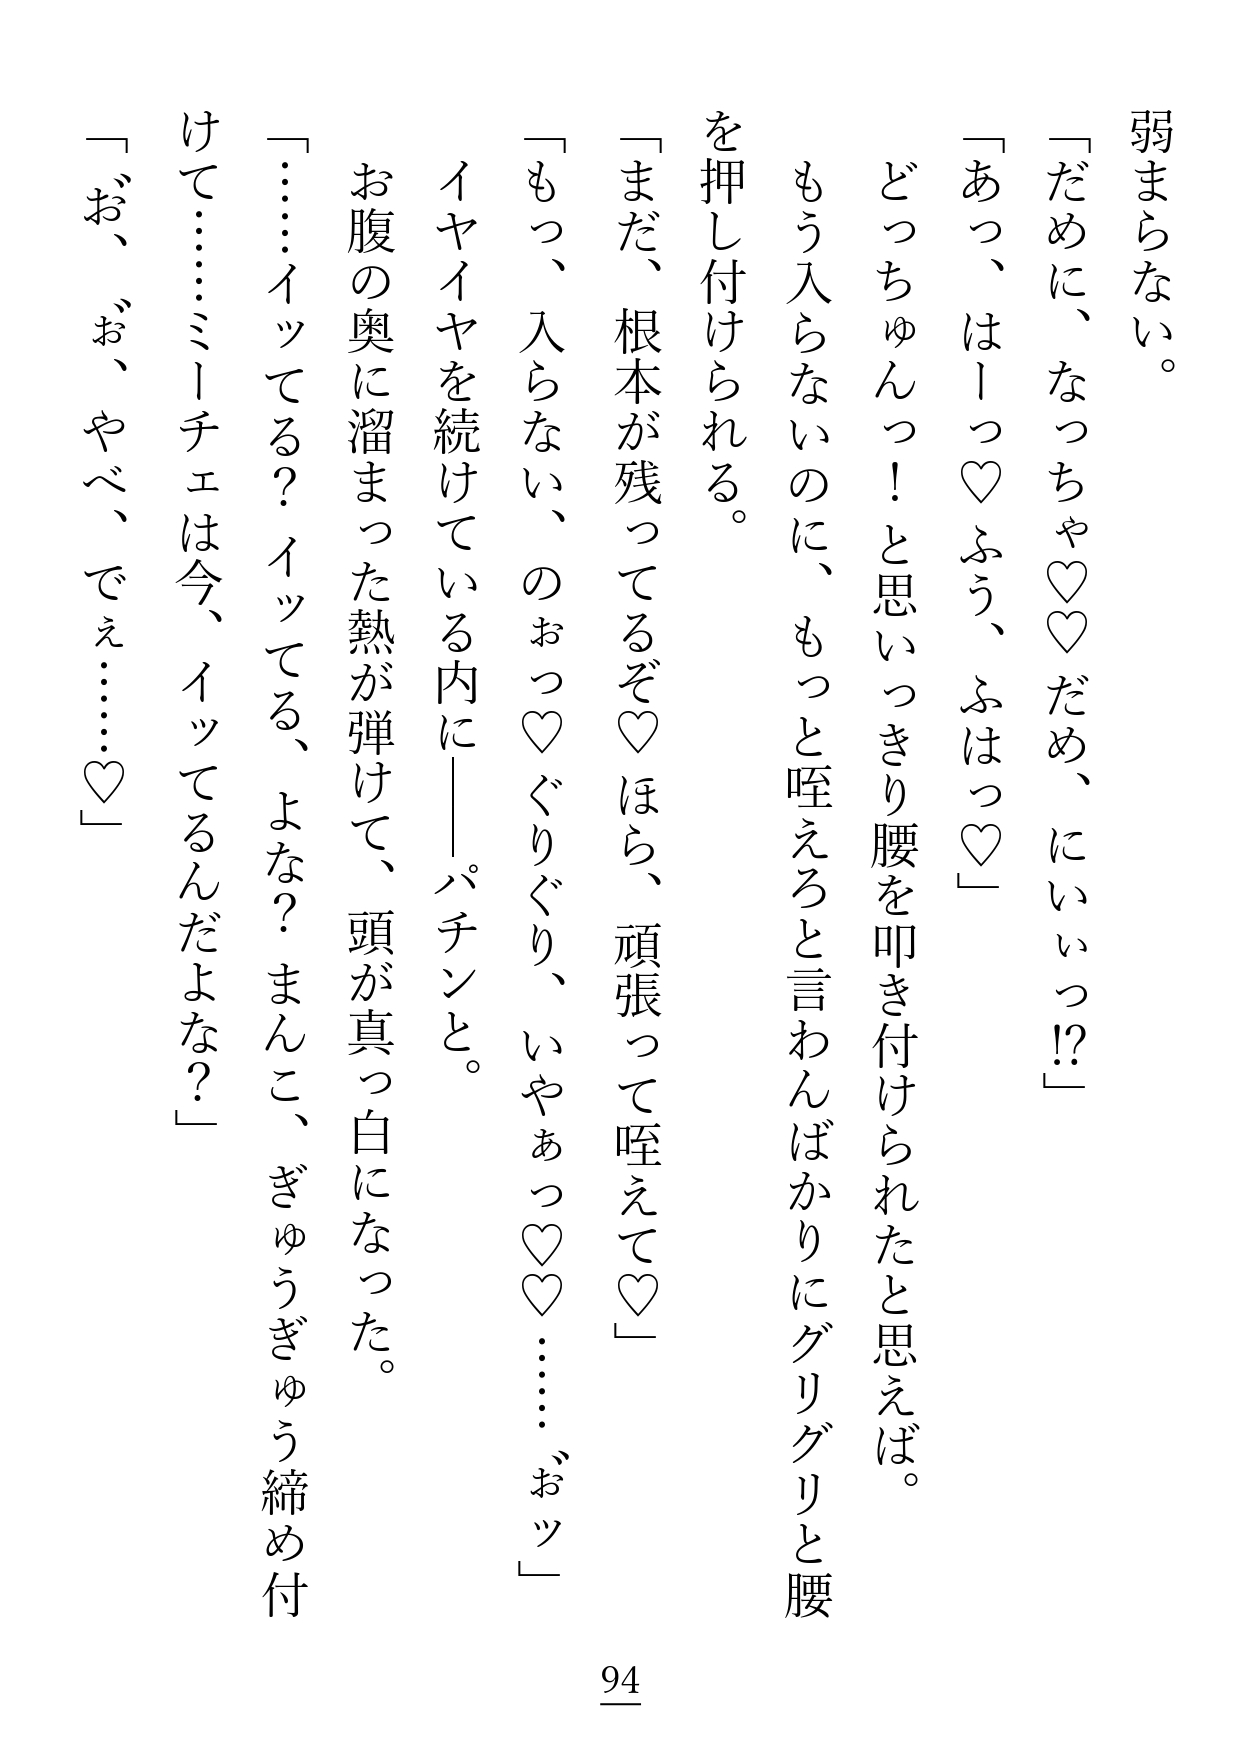 弱まらない。
「だめに、なっちゃ♡♡だめ、にいぃっ!?」
「あっ、はーっ♡ふう、ふはっ♡」
　どっちゅんっ！と思いっきり腰を叩き付けられたと思えば。
　もう入らないのに、もっと咥えろと言わんばかりにグリグリと腰
を押し付けられる。
「まだ、根本が残ってるぞ♡ほら、頑張って咥えて♡」
「もっ、入らない、のぉっ♡ぐりぐり、いやぁっ♡♡……お゛ッ」
　イヤイヤを続けている内に――パチンと。
　お腹の奥に溜まった熱が弾けて、頭が真っ白になった。
「……イッてる？イッてる、よな？まんこ、ぎゅうぎゅう締め付
けて……ミーチェは今、イッてるんだよな？」
「お゛、ぉ゛、やべ、でぇ……♡」
94